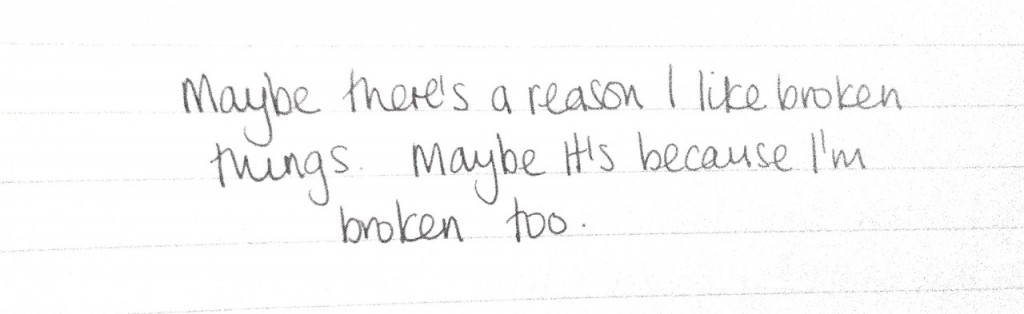 Maybe there's a reason I like broken
things. Maybe It's because I'm
broken too.